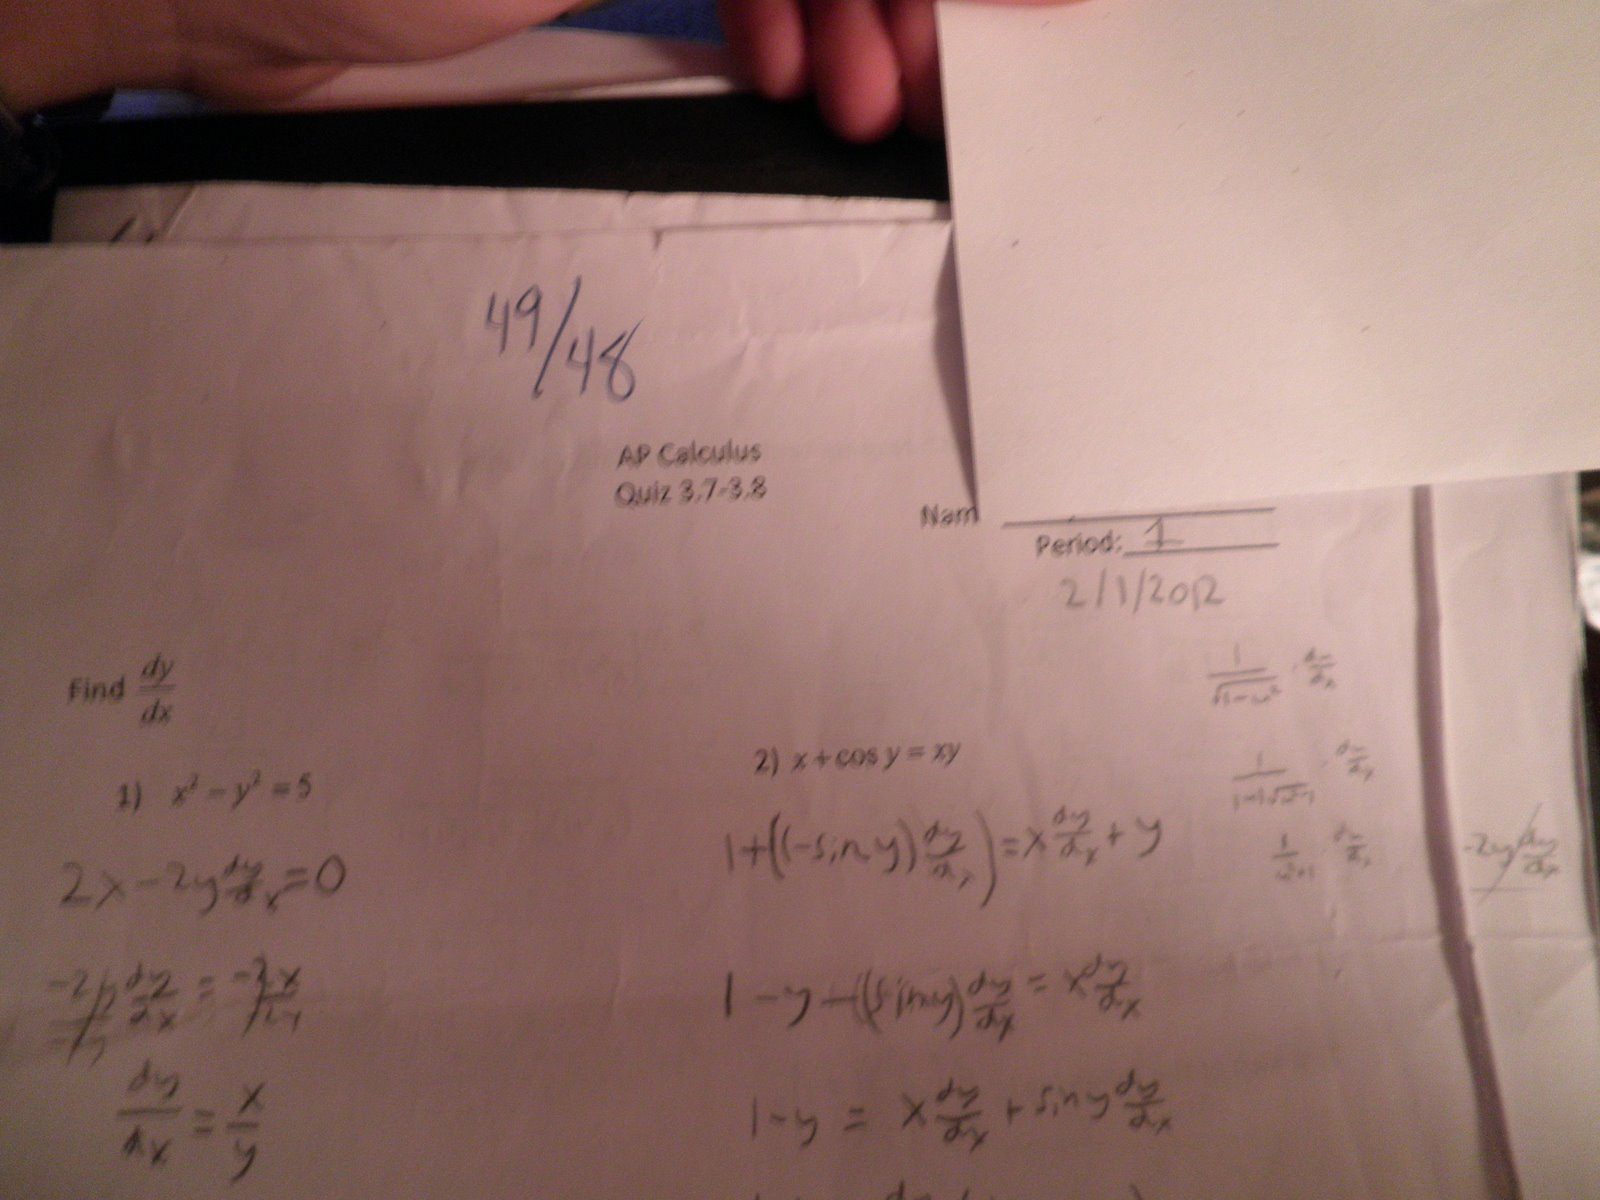 49/48
AP Calculus
Quiz 3.7-3.8
Nam
Period: 1
2/1/2012
Find dy/dx
1) x² - y² = 5
2x - 2y dy/dx = 0
dy/dx = -2x
dy/dx = x/y
2) x + cos y = xy
1 + ((-sin y) dy/dx) = x dy/dx + y
1 - y - ((sin y) dy/dx = x dy/dx
1 - y = x dy/dx + sin y dy/dx
1/√1-u² · du/dx
du/dx
du/dx
-2y dy/dx